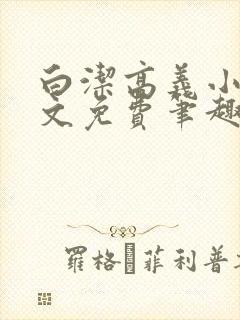 白潔高義小
文免費筆趣
羅格·菲利普